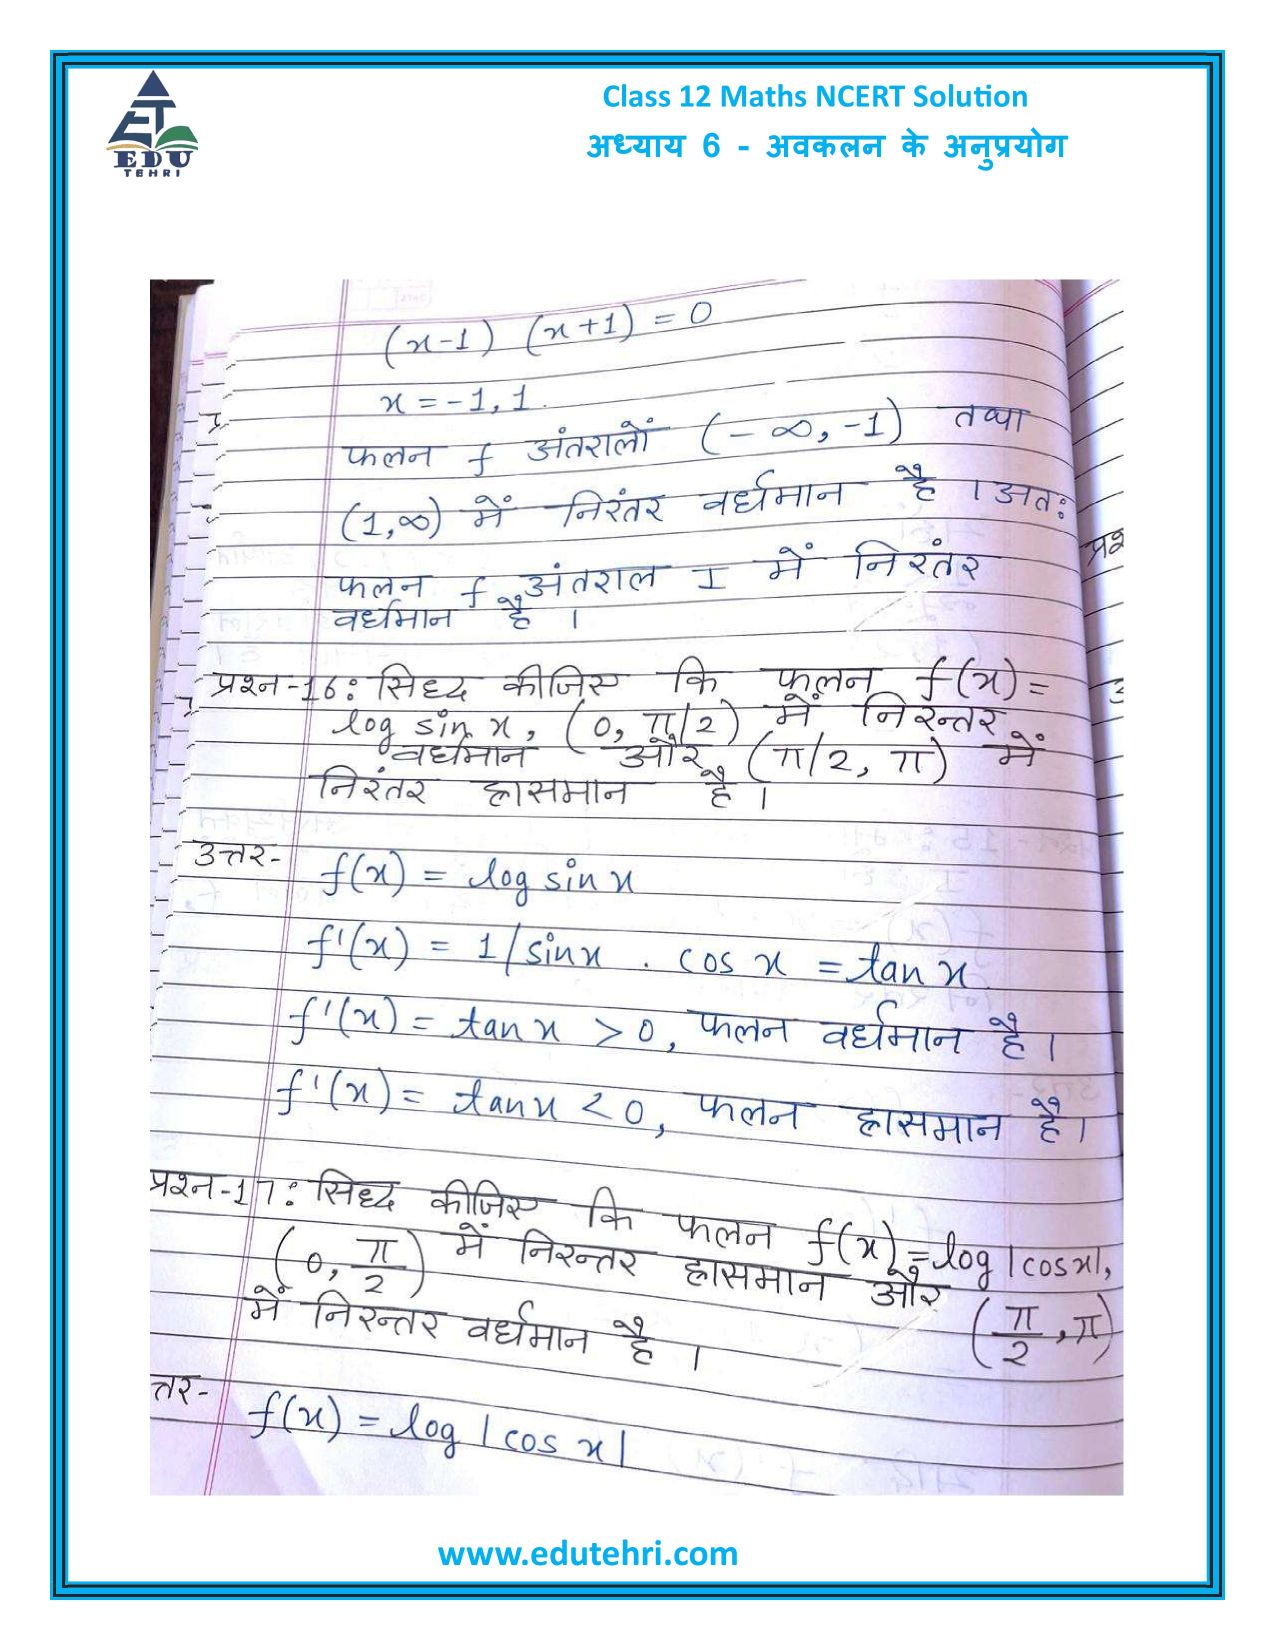 Class 12 Maths NCERT Solution
अध्याय 6 - अवकलन के अनुप्रयोग
ET
EDU
TEHRI
(x-1) (x+1) = 0
x = -1, 1.
फलन f अंतरालों (-∞, -1) तथा
(1,∞) में निरंतर वर्धमान है । अतः
फलन f अंतराल I में निरंतर
वर्धमान है ।
प्रश्न-16: सिध्द कीजिए कि फलन f(x)=
log sin x, (0, π/2) में निरन्तर
वर्धमान और (π/2, π) में
निरंतर ह्रासमान है ।
उत्तर- f(x) = log sin x
f'(x) = 1/sinx . cos x = tan x
f'(x) = tan x > 0, फलन वर्धमान है ।
f'(x) = tan x < 0, फलन ह्रासमान है ।
प्रश्न-17: सिध्द कीजिए कि फलन f(x)=log|cosx|,
(0, π/2) में निरन्तर ह्रासमान और (π/2, π)
में निरन्तर वर्धमान है ।
त्तर- f(x) = log|cos x|
प्रश
www.edutehri.com